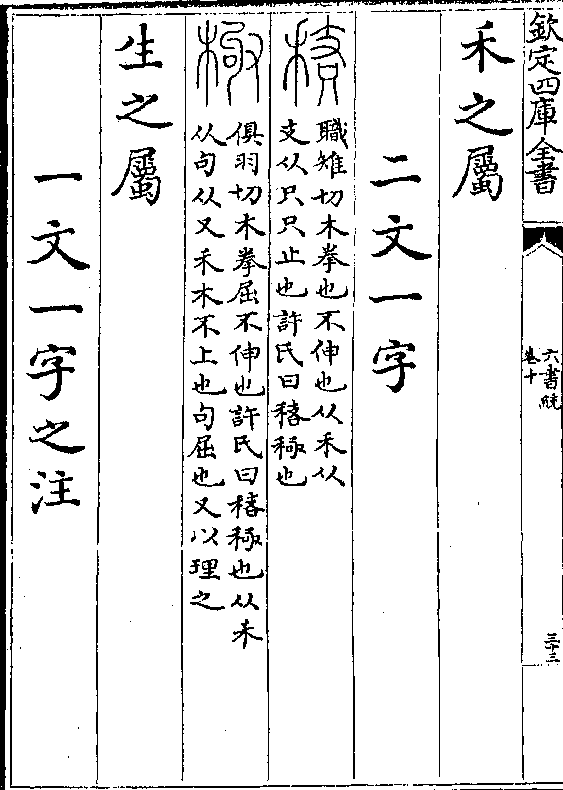 欽定四庫全書
六書統
卷十
三十三
禾之屬
二文一字
職雉切木拳也不伸也从禾从
支从只只止也許氏曰䅩𥠻也
俱羽切木拳屈不伸也許氏曰䅩𥠻也从未
从句从又禾木不上也句屈也又以理之
生之屬
一文一字之注